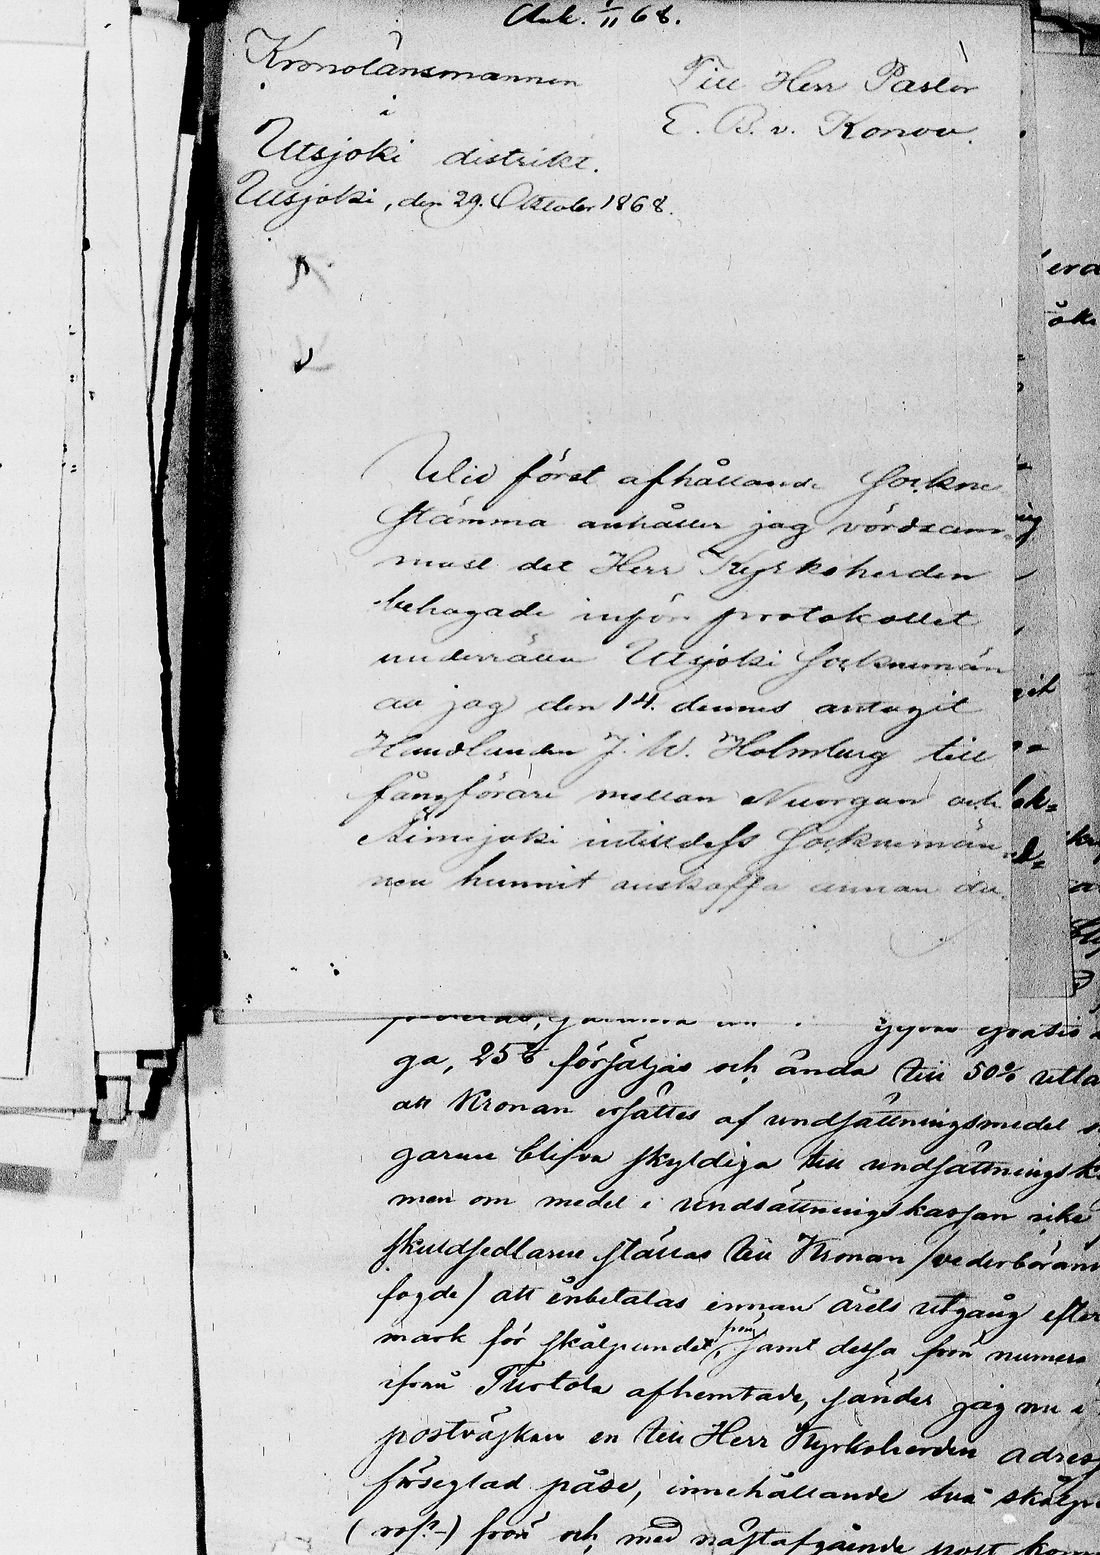 Ank. 1/11 68.
Kronolänsmannen
i
Utsjoki distrikt.
Utsjoki, den 29. Oktober 1868.
Till Herr Pastor
E. B. v. Konow.
Wid först afhållande Sockne
stämma anhåller jag vördsam-
mast det Herr Kyrkoherden
behagade inför protokollet
underrätta Utsjoki Sockenemän
att jag den 14. dennes antagit
Handlanden J. W. Holmburg till
fångförare mellan Nuorgam och
Aimejoki intilldess Sockenemän-
nen hunnit anskaffa annan du
ga, 25% försäljas och ända till 50% utla
att Kronan ersättes af undsättningsmedel
garne blifva skyldiga till undsättningsk
men om medel i undsättningskassan icke
skuldsedlarne ställas till Kronan /vederböran
fogde/ att inbetalas innan årets utgång efter
mark för skålpundet, frön samt dessa frön numera
ifrån Turtola afhemtade, sänder jag nu i
postväskan en till Herr Kyrkoherden adress
förseglad påse, innehållande två skålp
frön och med nästafgående post kom